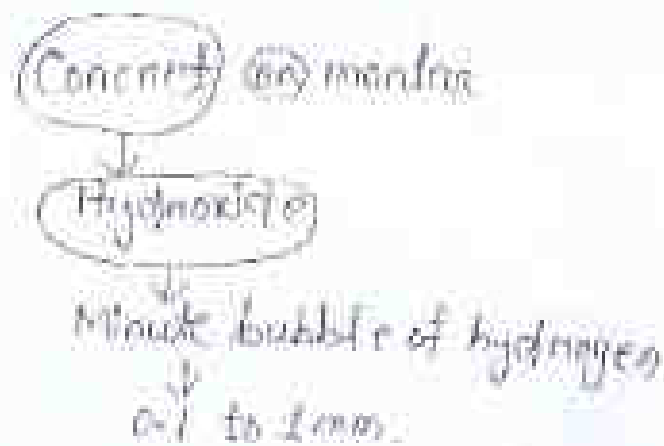 Concret (or) mortar
Hydroxide
Minute bubble of hydrogen
0.1 to 1 mm.